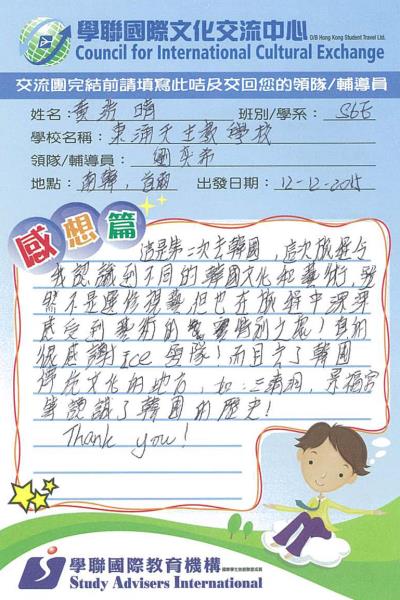 學聯國際文化交流中心 D/B Hong Kong Student Travel Ltd.
Council for International Cultural Exchange
交流團完結前請填寫此咭及交回您的領隊/輔導員
姓名: 黃 晴 班別/學系: S6E
學校名稱: 東涌天主教學校
領隊/輔導員:
地點: 南韓,首爾 出發日期: 12-12-2015
感想篇
這是第二次去韓國,這次旅程令
我認識到不同的韓國文化和藝術,雖
然不是選修視藝,但也在旅程中深深
感受到藝術的 特別之處!真的
很感謝Ice 領隊!而且去了韓國
傳統文化的地方,如:三清洞,景福宮
等認識了韓國的歷史!
Thank you!
學聯國際教育機構
Study Advisers International